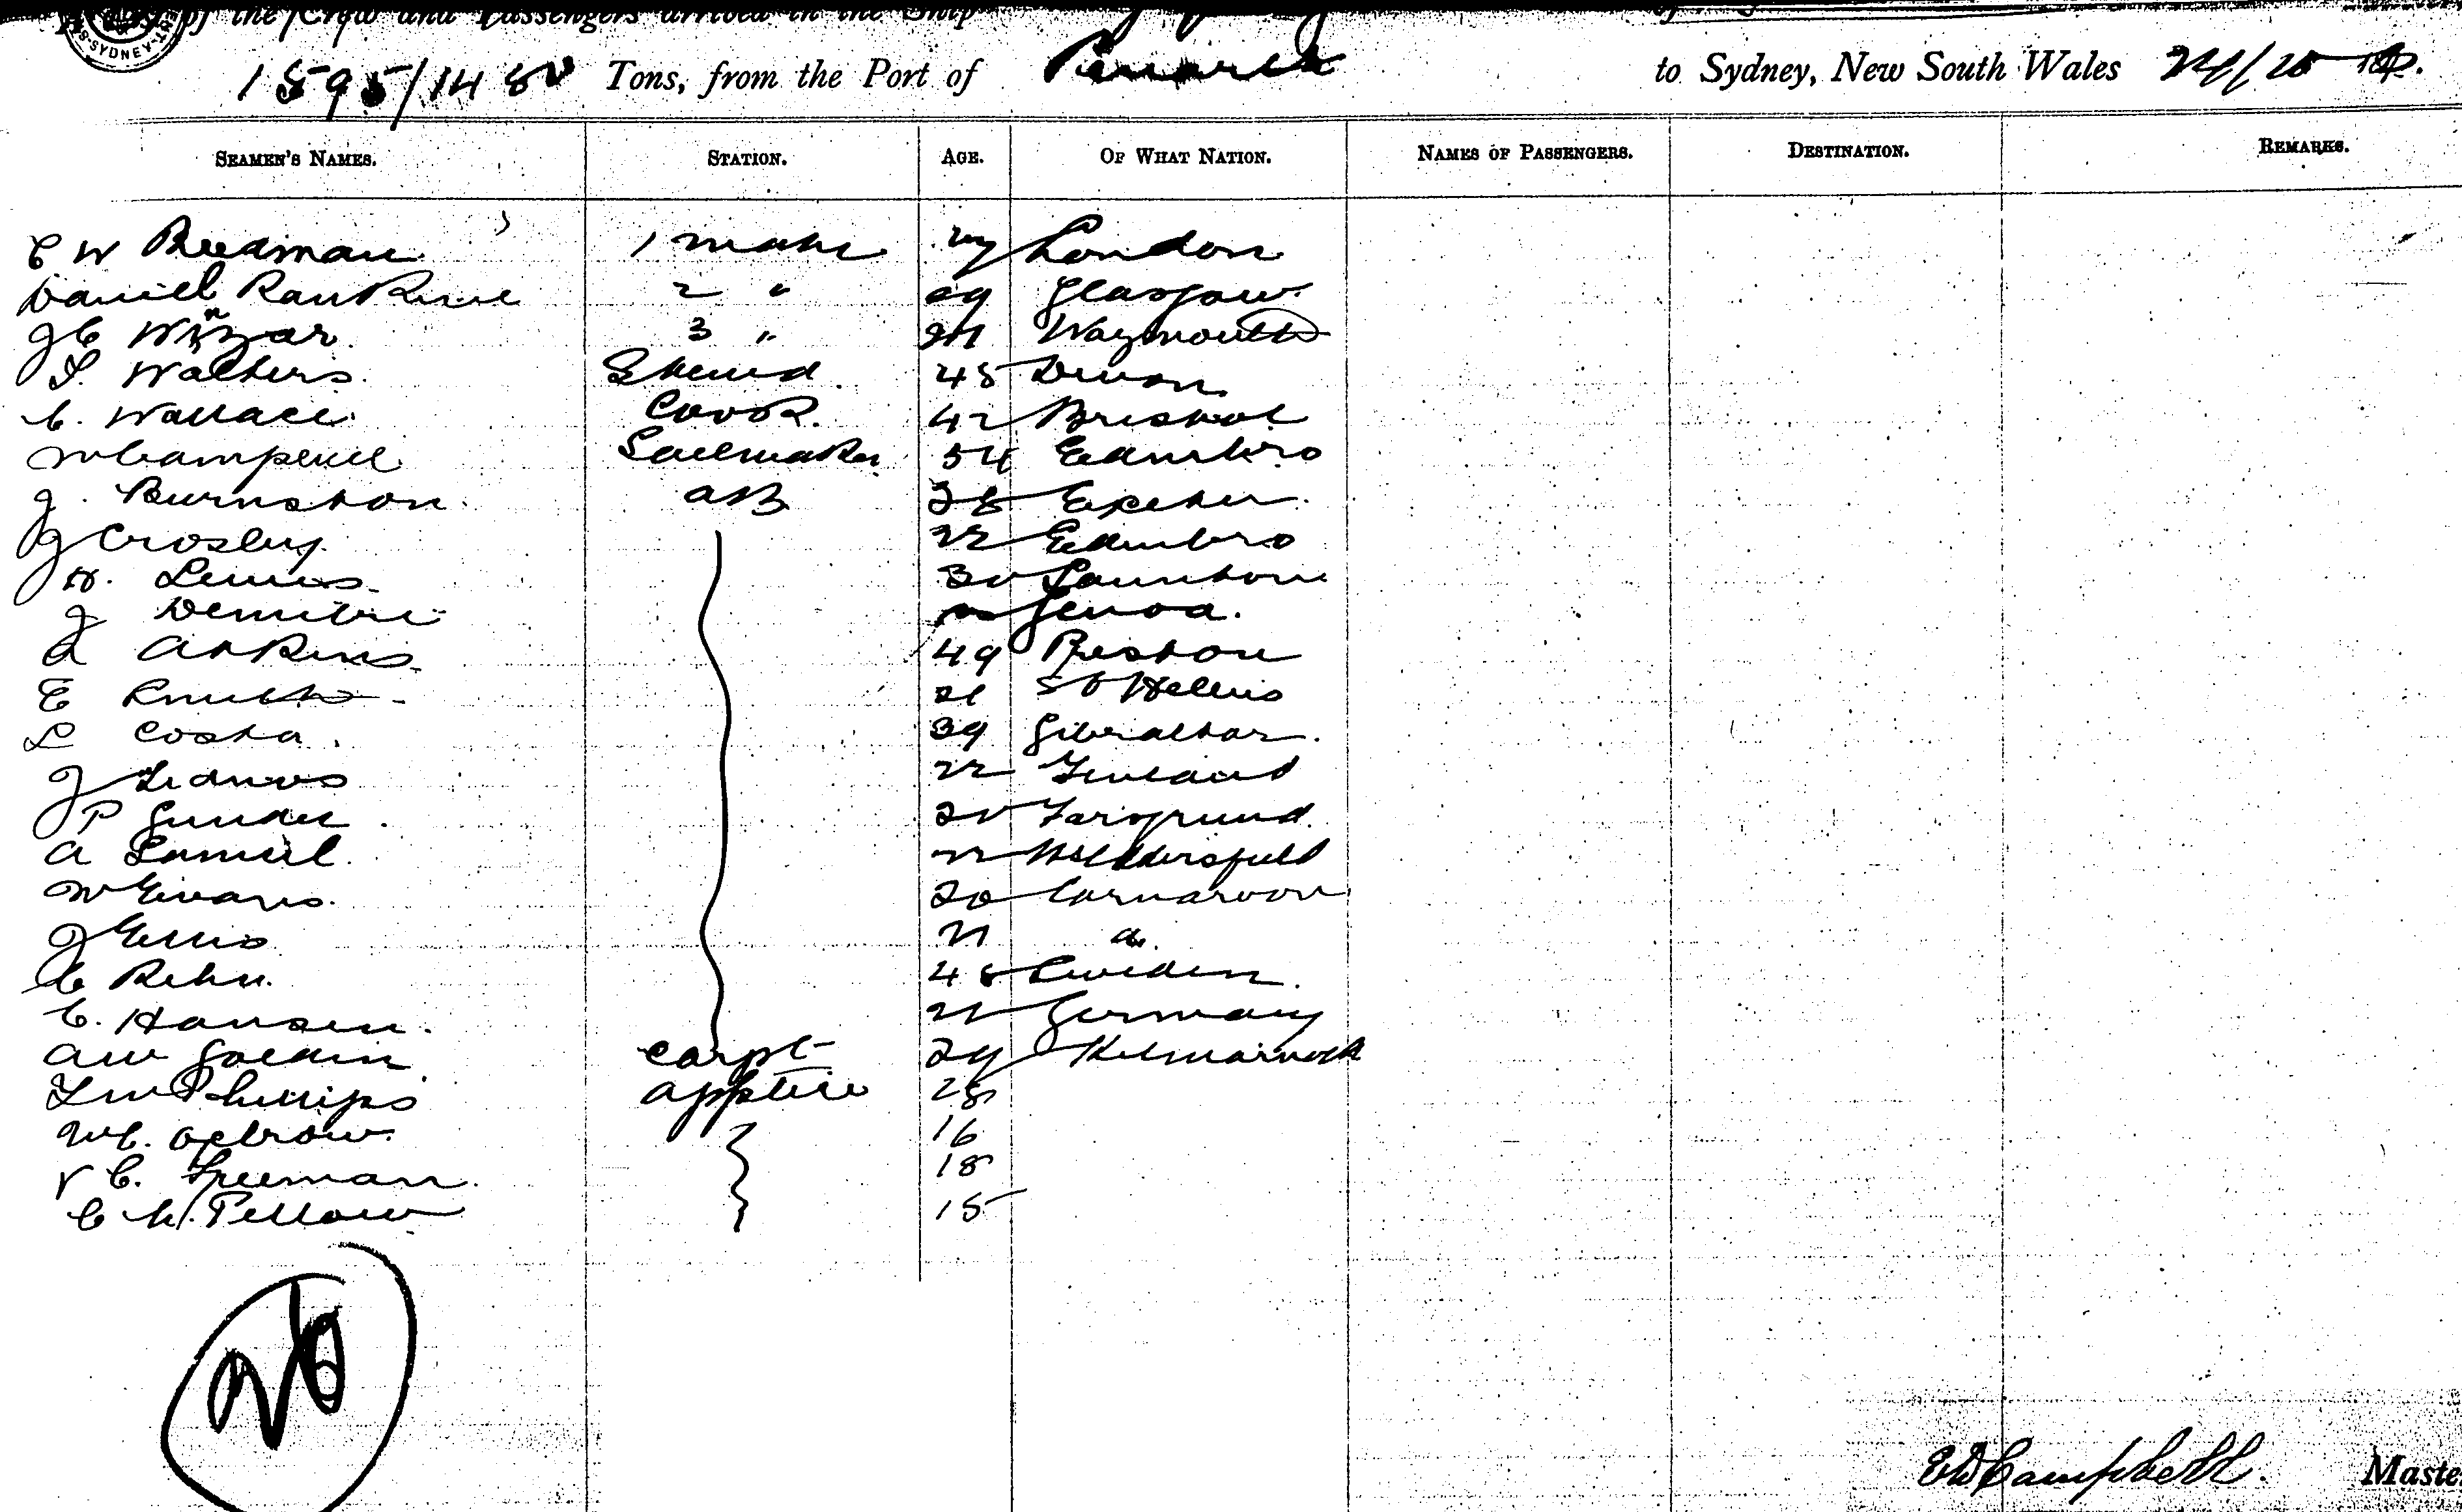 of the Crew and Passengers arrived in the Ship
SYDNEY
1595/1480 Tons, from the Port of Penarth to Sydney, New South Wales 18
SEAMEN'S NAMES. STATION. AGE. OF WHAT NATION. NAMES OF PASSENGERS. DESTINATION. REMARKS.
C W Reedman 1 mate London
Daniel Rankine 2 " 29 Glasgow
J C 3 " Waymouth
S. Walters Steward 45 Devon
C. Wallace Cook 42 Bristol
M Campbell Sailmaker 54 Edinbro
J. Burnston AB 28 Exeter
J Crosby 22 Edinbro
H. Lewis 30 Taunton
J Demetri Genoa.
A Atkins 49 Preston
E Smith 21 St Hellens
L Costa. 39 Gibraltar.
J 22 Finland
P Gunder
A Samuel 22
W Evans. 20 Carnarvon
J Ellis 21 do.
C Rehn. 48 Sweden.
C. Hansen. 21 Germany
AW Golden carpt 29 Kilmarnock
F W Phillips apptice 18
W C. 16
V C. Freeman. 18
C W. Pellow 15
26
EW Campbell. Maste